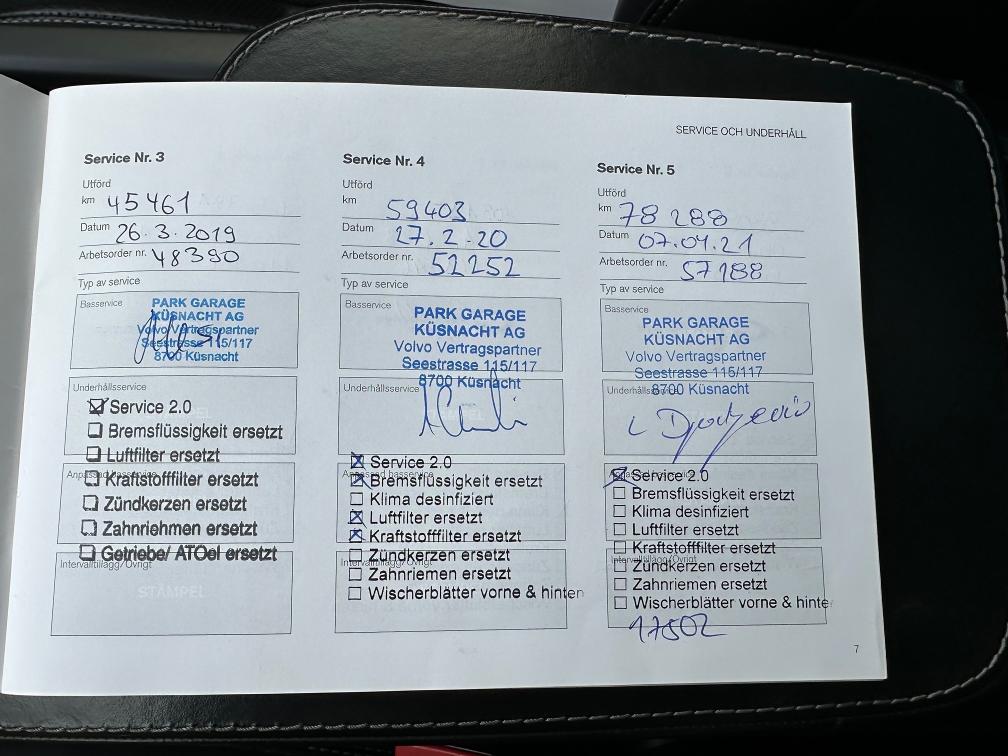 SERVICE OCH UNDERHÅLL
Service Nr. 3
Utförd
km 45461
Datum 26.3.2019
Arbetsorder nr. 48390
Typ av service
Basservice
PARK GARAGE
KÜSNACHT AG
Volvo Vertragspartner
Seestrasse 115/117
8700 Küsnacht
Underhållsservice
Service 2.0
Bremsflüssigkeit ersetzt
Luftfilter ersetzt
Anpassad basservice
Kraftstofffilter ersetzt
Zündkerzen ersetzt
Zahnriehmen ersetzt
Getriebe/ ATOel ersetzt
Intervalltillägg/Övrigt
STÄMPEL
Service Nr. 4
Utförd
km 59403
Datum 27.2.20
Arbetsorder nr. 52252
Typ av service
Basservice
PARK GARAGE
KÜSNACHT AG
Volvo Vertragspartner
Seestrasse 115/117
8700 Küsnacht
Underhållsservice
Service 2.0
Anpassad basservice
Bremsflüssigkeit ersetzt
Klima desinfiziert
Luftfilter ersetzt
Kraftstofffilter ersetzt
Zündkerzen ersetzt
Intervalltillägg/Övrigt
Zahnriemen ersetzt
Wischerblätter vorne & hinten
Service Nr. 5
Utförd
km 78288
Datum 07.04.21
Arbetsorder nr. 57188
Typ av service
Basservice
PARK GARAGE
KÜSNACHT AG
Volvo Vertragspartner
Seestrasse 115/117
8700 Küsnacht
Service 2.0
Bremsflüssigkeit ersetzt
Klima desinfiziert
Luftfilter ersetzt
Kraftstofffilter ersetzt
Intervalltillägg/Övrigt
Zündkerzen ersetzt
Zahnriemen ersetzt
Wischerblätter vorne & hinte
17502
7